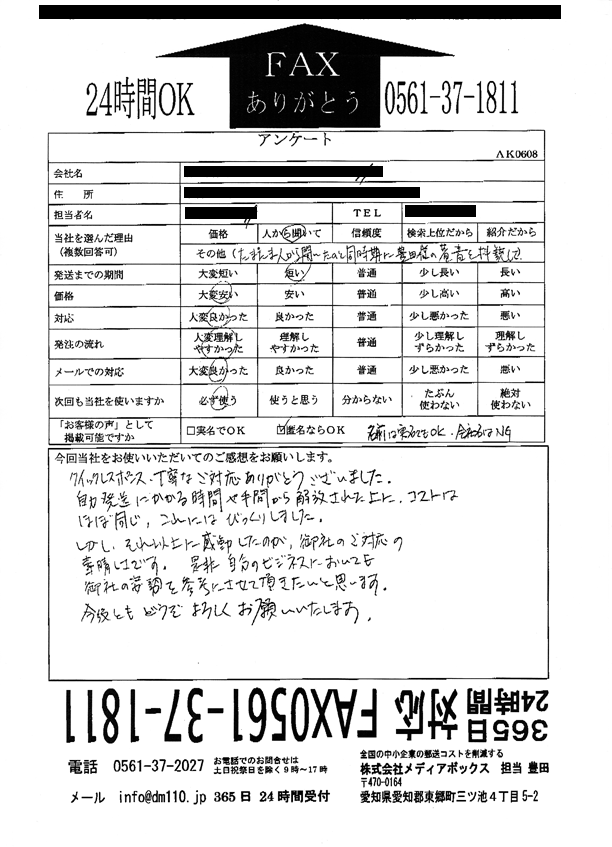 FAX
ありがとう
24時間OK
0561-37-1811
アンケート
AK0608
会社名
住 所
担当者名 TEL
当社を選んだ理由(複数回答可) 価格 人から聞いて 信頼度 検索上位だから 紹介だから
その他(たまたま人から聞いたのと同時期に豊田様の著書を拝読して)
発送までの期間 大変短い 短い 普通 少し長い 長い
価格 大変安い 安い 普通 少し高い 高い
対応 大変良かった 良かった 普通 少し悪かった 悪い
発注の流れ 大変理解しやすかった 理解しやすかった 普通 少し理解しずらかった 理解しずらかった
メールでの対応 大変良かった 良かった 普通 少し悪かった 悪い
次回も当社を使いますか 必ず使う 使うと思う 分からない たぶん使わない 絶対使わない
「お客様の声」として掲載可能ですか □実名でOK ☑匿名ならOK 名前は実名でもOK、会社名はNG
今回当社をお使いいただいてのご感想をお願いします。
クイックレスポンス、丁寧なご対応ありがとうございました。
自力発送にかかる時間や手間から解放された上に、コストは
ほぼ同じ、これにはびっくりしました。
しかし、それ以上に感動したのが、御社のご対応の
素晴しさです。是非自分のビジネスにおいても
御社の姿勢を参考にさせて頂きたいと思います。
今後ともどうぞよろしくお願いいたします。
365日24時間対応 FAX0561-37-1811
電話 0561-37-2027 お電話でのお問合せは土日祝祭日を除く9時〜17時
メール info@dm110.jp 365日 24時間受付
全国の中小企業の郵送コストを削減する
株式会社メディアボックス 担当 豊田
〒470-0164
愛知県愛知郡東郷町三ツ池4丁目5-2